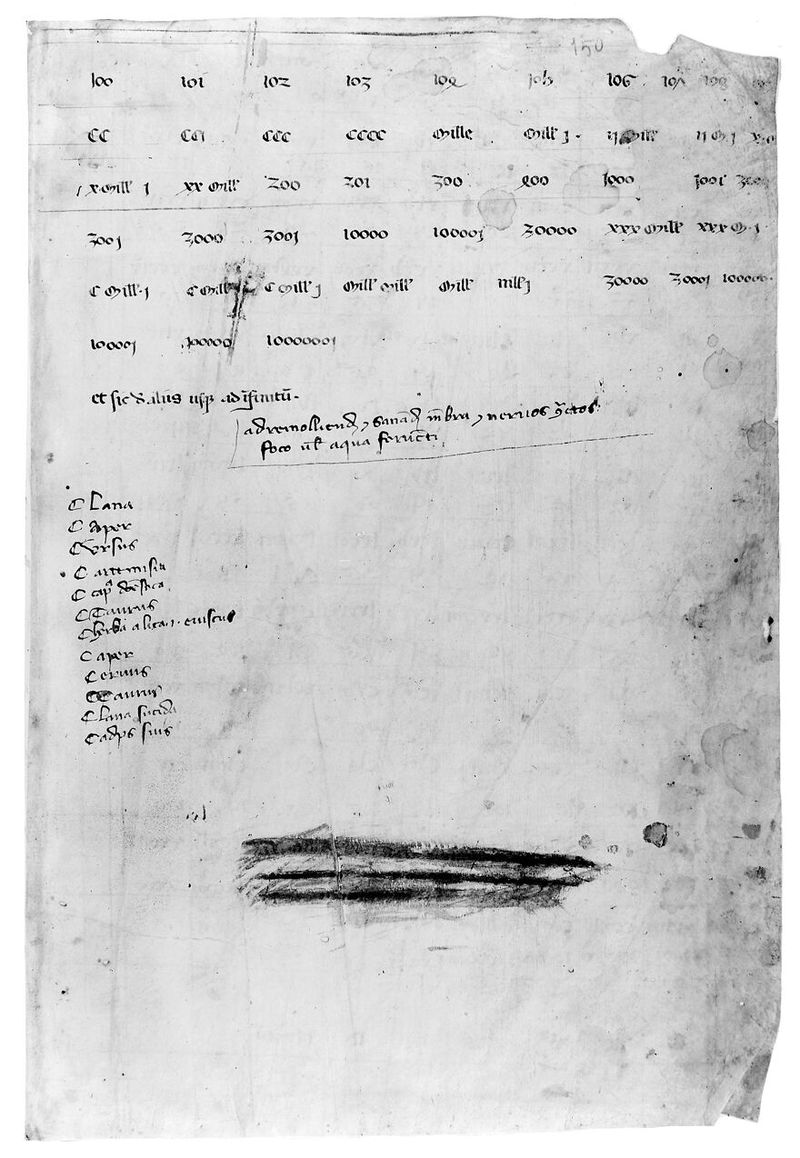 150
100 101 102 103 104 105 106 107 108
CC CCj CCC CCCC Mille Mill' j. ij Mill' ij M j
x Mill' j xx Mill' 200 201 300 400 1000 1001
3001 2000 3001 10000 10001 20000 xxx Mill' xxx M j
C Mill' j C Mill' C Mill' j Mill' Mill' Mill' Mill' j 30000 30001 100000
10001 100000 10000001
et sic d' aliis usq; ad ifinitū.
ad remolliend' ⁊ sanād' mēbra ⁊ neruos
foco ul' aqua
C Lana
C Aper
C Vrsus
C artemisia
C cap
C Taurus
C herba altea .i. euiscus
C aper
Ceruus
C Taurus
C lana sucida
C adeps suis